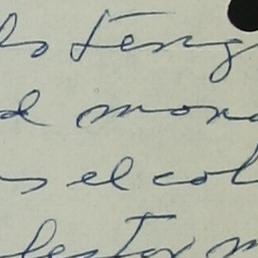 lo teng
d mon
s el col
lestor m